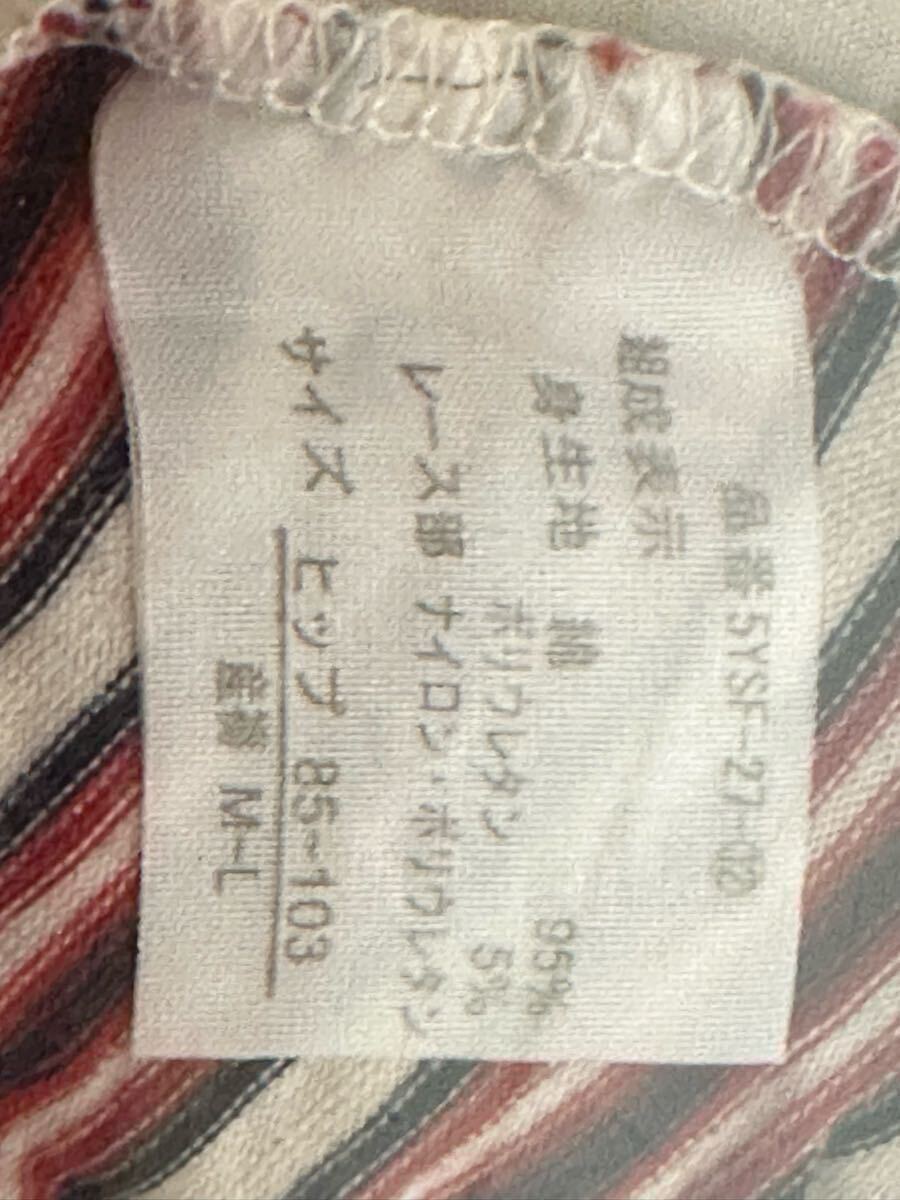 品番 5YSF-27-⑫
組成表示
身生地 綿 95%
ポリウレタン 5%
レース部 ナイロン・ポリウレタン
サイズ ヒップ 85~103
産褥 M-L